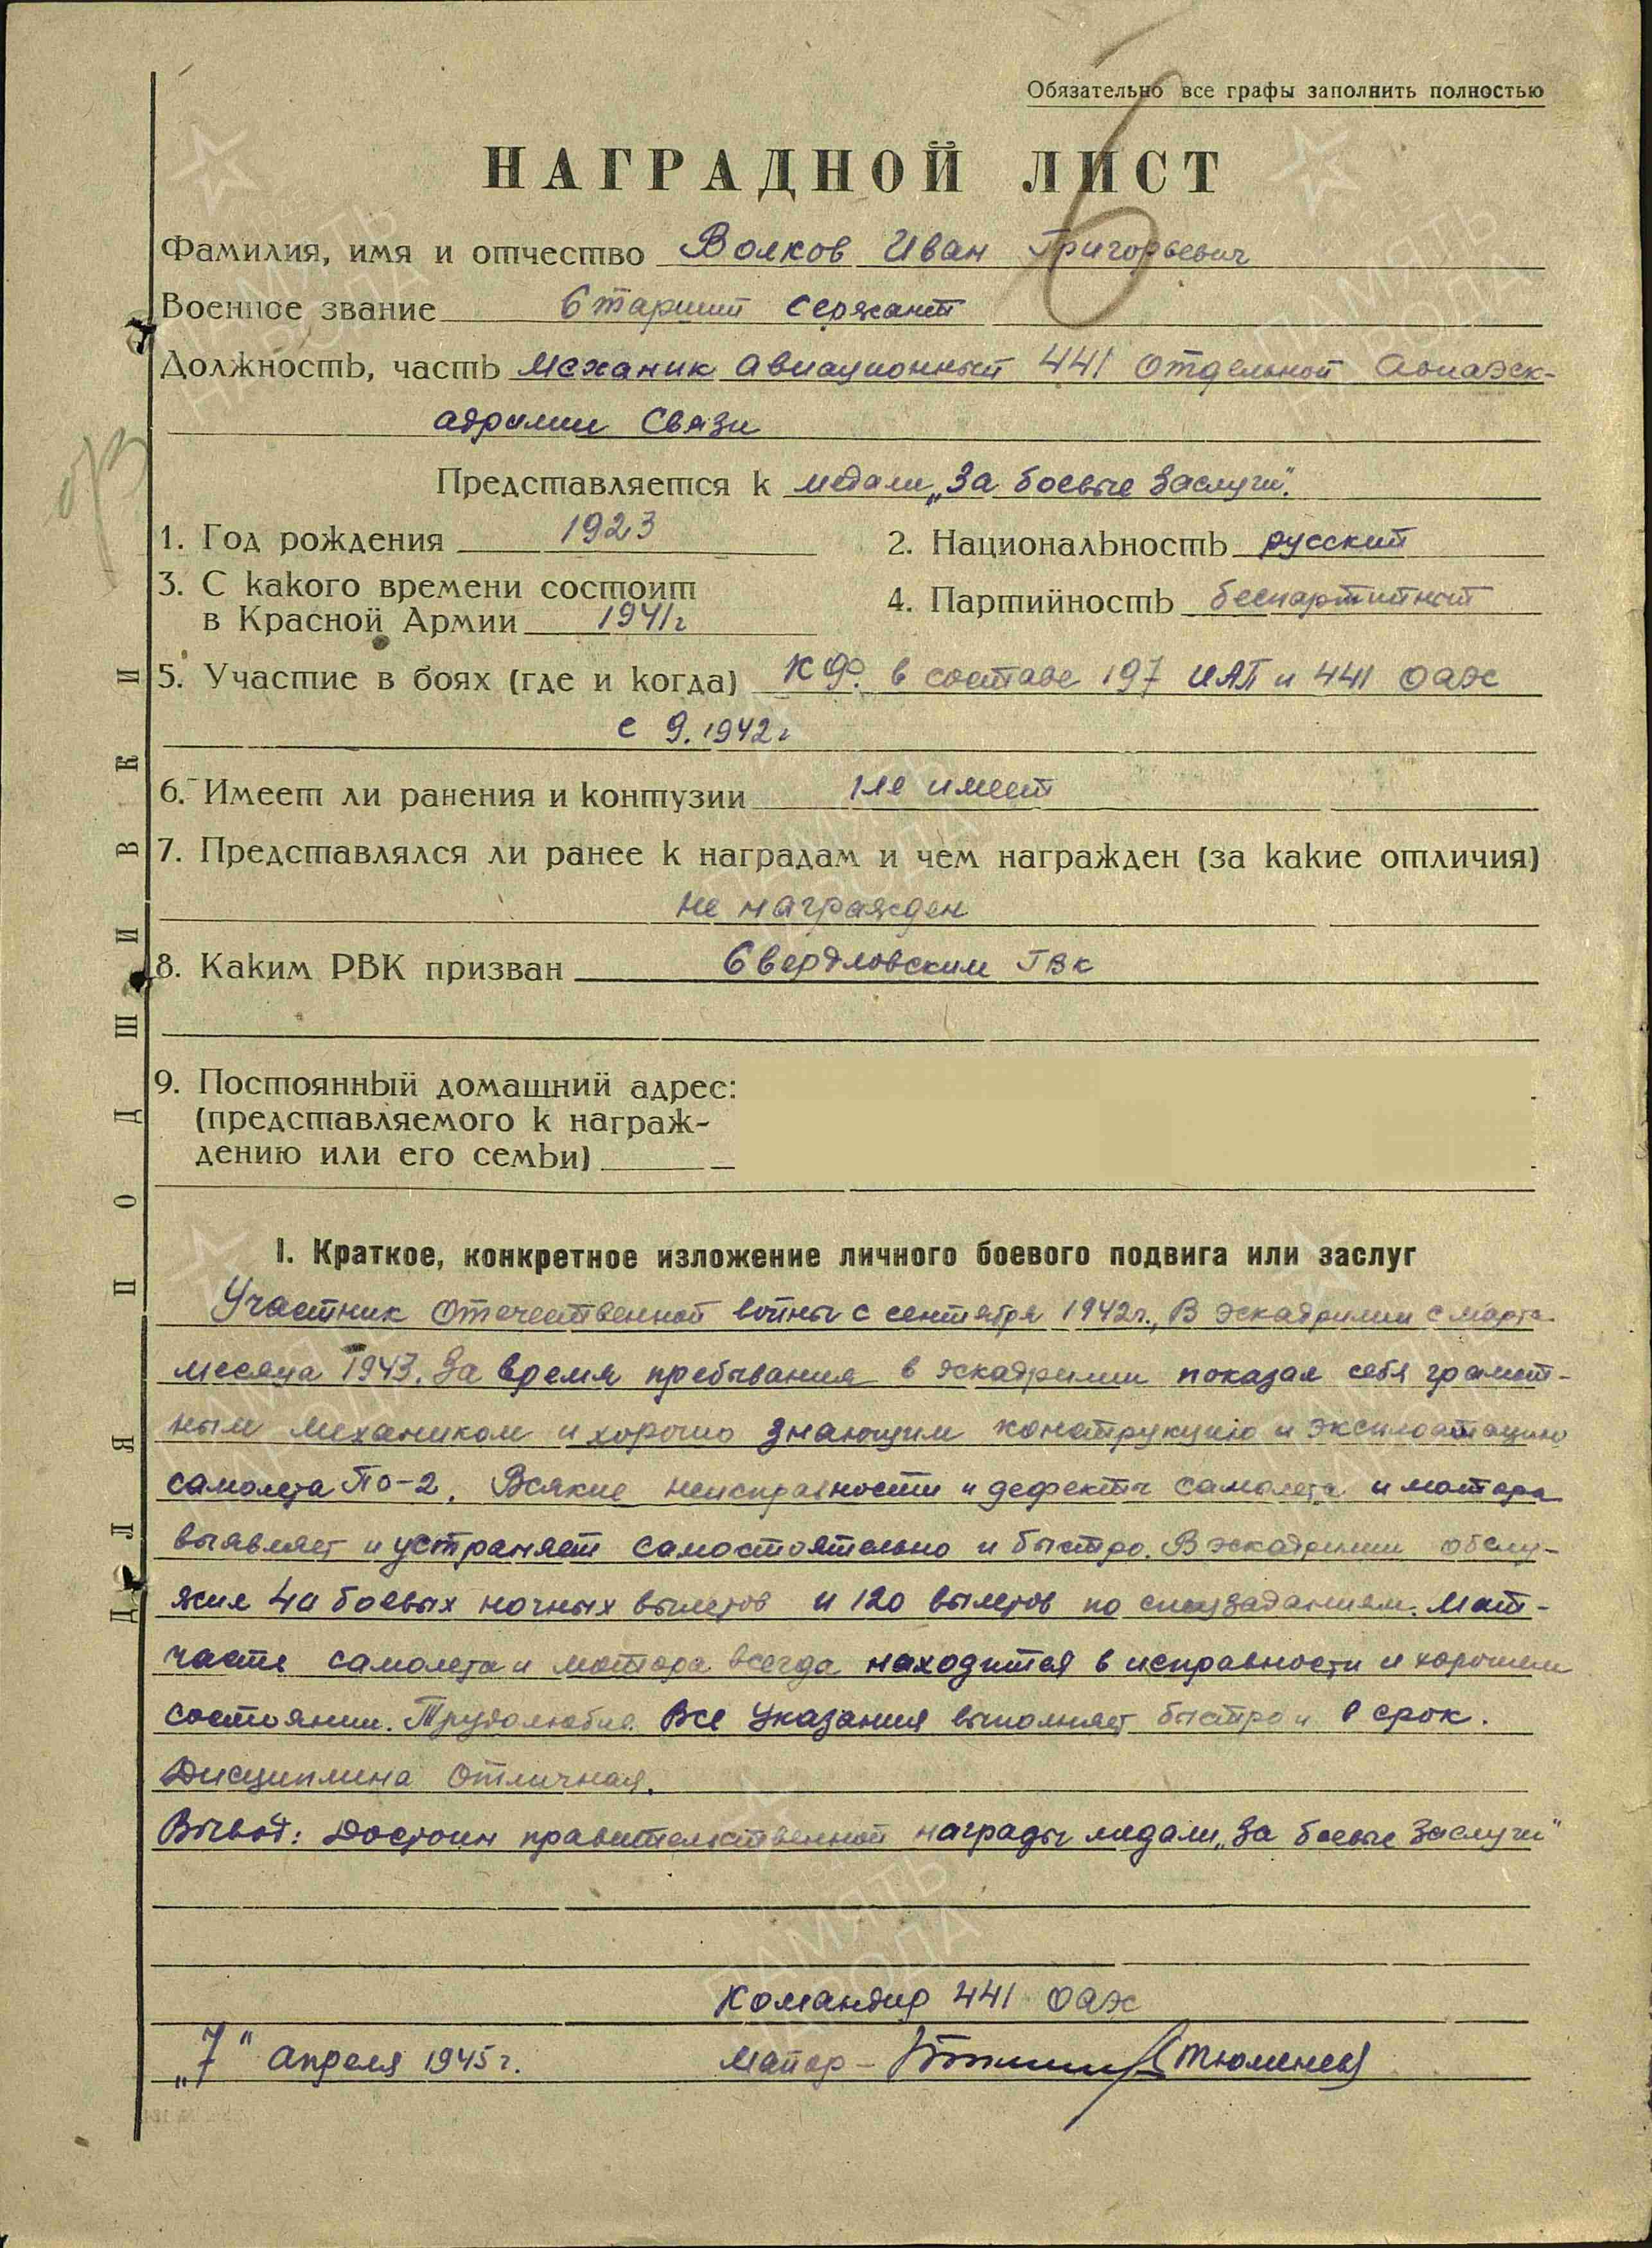 Обязательно все графы заполнить полностью
6
НАГРАДНОЙ ЛИСТ
Фамилия, имя и отчество Волков Иван Григорьевич
Военное звание Старший сержант
Должность, часть Механик авиационный 441 отдельной авиаэск-
адрилии Связи
Представляется к медали „За боевые заслуги".
1. Год рождения 1923
2. Национальность русский
3. С какого времени состоит
в Красной Армии 1941г
4. Партийность беспартийный
5. Участие в боях (где и когда) КФ. в составе 197 ИАП и 441 ОАЭС
с 9.1942г
6. Имеет ли ранения и контузии не имеет
7. Представлялся ли ранее к наградам и чем награжден (за какие отличия)
не награжден
8. Каким РВК призван Свердловским ГВК
9. Постоянный домашний адрес:
(представляемого к награж-
дению или его семьи)
I. Краткое, конкретное изложение личного боевого подвига или заслуг
Участник Отечественной войны с сентября 1942г., В эскадрилии с марта
месяца 1943. За время пребывания в эскадрилии показал себя грамот-
ным механиком и хорошо знающим конструкцию и эксплоатацию
самолета По-2. Всякие неисправности и дефекты самолета и мотора
выявляет и устраняет самостоятельно и быстро. В эскадрилии обслу-
жил боевых ночных вылетов и 120 вылетов по спецзаданиям. Мат-
часть самолета и мотора всегда находится в исправности и хорошем
состоянии. Трудолюбив. Все указания выполняет быстро и в срок.
Дисциплина отличная.
Вывод: Достоин правительственной награды медали „За боевые заслуги"
Командир 441 ОАЭС
„7" апреля 1945г. Майор - (Тюменев)
ДЛЯ ПОДШИВКИ
ПАМЯТЬ НАРОДА